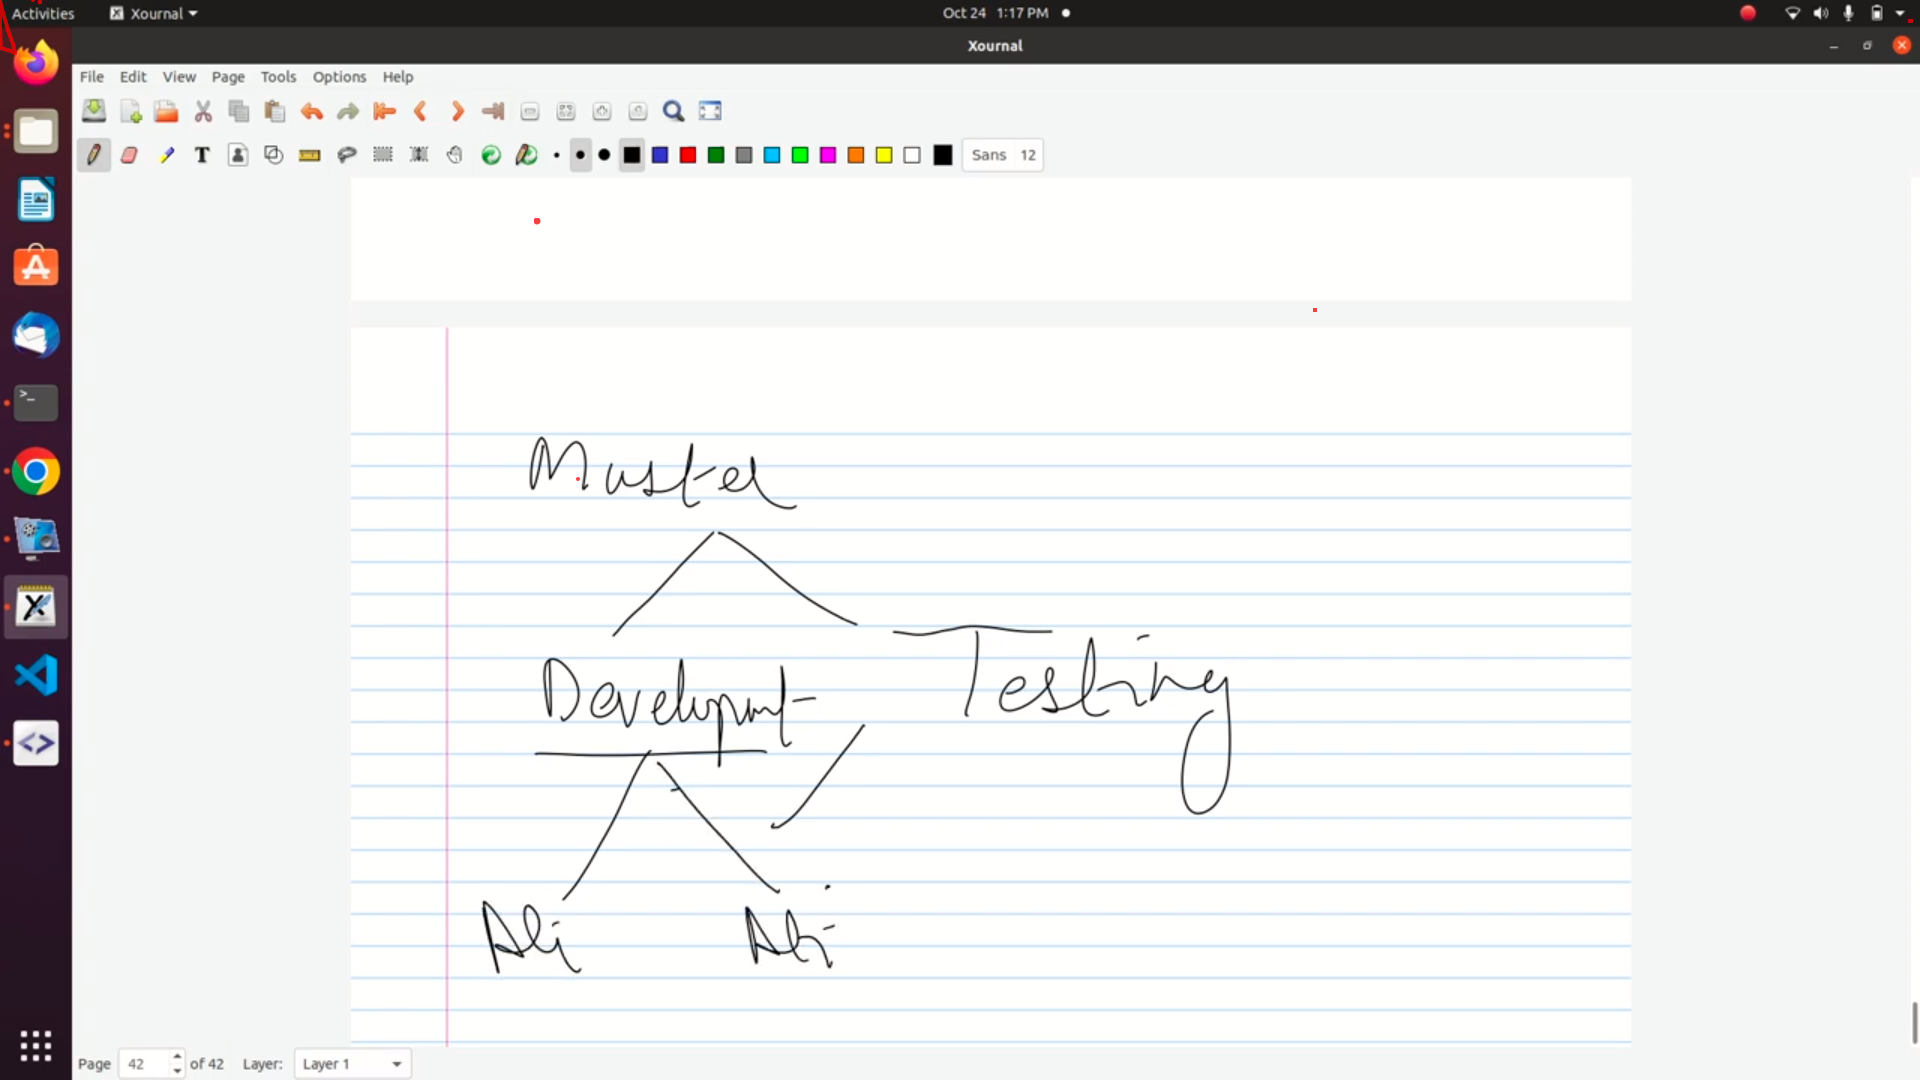 Activities Xournal Oct 24 1:17 PM
Xournal
File Edit View Page Tools Options Help
Sans 12
Master
Testing
Developmt
Ali Ali
Page 42 of 42 Layer: Layer 1